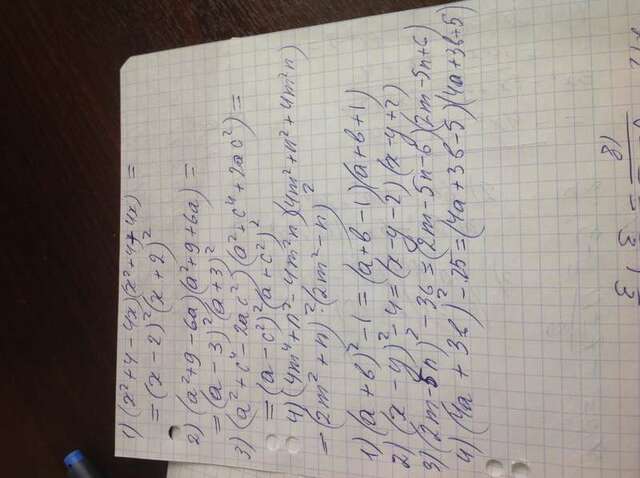 1) (x²+4-4x)(x²+4+4x) =
= (x-2)²(x+2)²
2) (a²+9-6a)(a²+9+6a) =
= (a-3)²(a+3)²
3) (a²+c⁴-2ac²)(a²+c⁴+2ac²) =
= (a-c²)²(a+c²)²
4) (4m⁴+n²-4m²n)(4m²+n²+4m²n)
= (2m²+n)²·(2m²-n)²
1) (a+b)²-1=(a+b-1)(a+b+1)
2) (x-y)²-4=(x-y-2)(x-y+2)
3) (2m-5n)²-36=(2m-5n-6)(2m-5n+6)
4) (4a+3b)²-25=(4a+3b-5)(4a+3b+5)